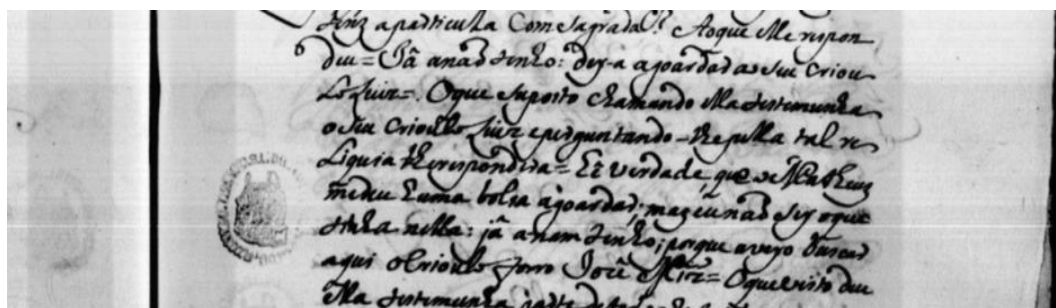 tinz a particulla Comsagrada? Aoque elle respon
deu = Iâ anaõ tenho: dey-a agoardar ao seu Criou
Lo Luiz =. Oque suposto chamando ella testimunha
o seu Crioullo Luiz eperguntando-lhe pella tal re
Liquia lhe respondera = Eê verdade, que o Matheus
medeu huma bolsa agoardar; maz eu naõ sey oque
tinha nella: já anam tenho; porque aveyo buscar
aqui oCrioullo forro Jozê Miz = Oque visto deu
ella testimunha parte